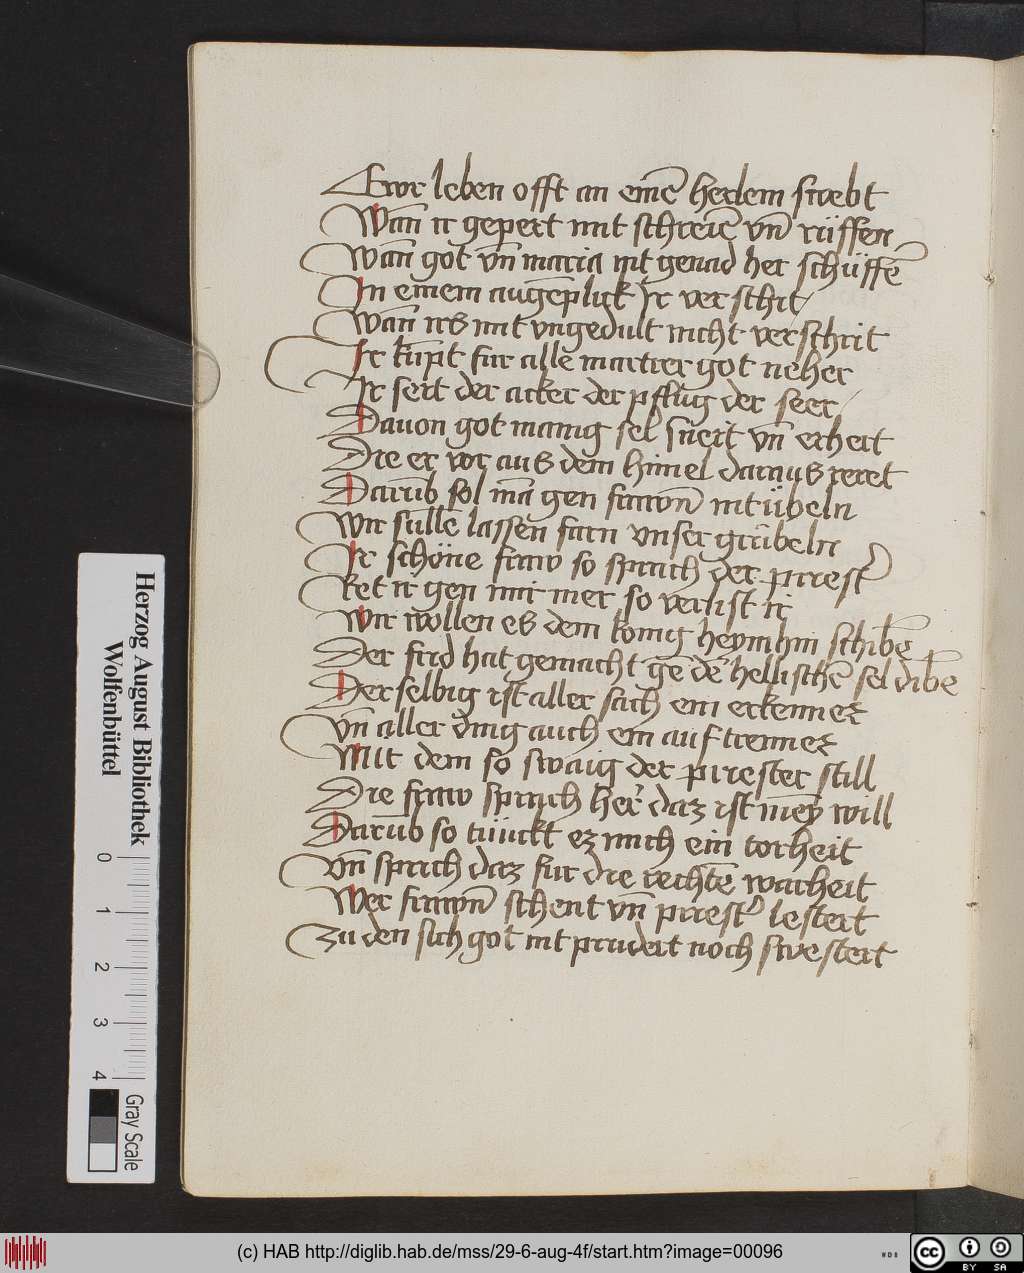 Ewr leben offt an einē herlem swebt
Wān ir gepert mit schreiē vn̄ rüffen
Wān got vn̄ maria mt genad her schüffē
In einem augēplick Ir ver schit
Wān irs mit vngedult nicht verschrit
Ir kūpt fur alle martrer got neher
Ir seit der acker der pflug der seer
Dauon got manig sel snert vn̄ erhert
Die er vor aus dem himel daraus reret
Darūb sol mā gen frawn̄ nit übeln
Wir sulle lassen farn vnser grübeln
Ir schöne fraw so sprach der priest'
Ret ir gen mir mer so verlist ir
Wir wollen es dem konig heymhin schibē
Der frid hat gemacht gē dē hellischē sel dibē
Der selbig ist aller sach ein erkenner
Vn̄ aller ding auch ein auf trenner
Mit dem so swaig der priester still
Die fraw sprach her daz ist mey will
Darūb so tuuckt ez mich ein torheit
Vn̄ sprich daz fur die rechtē warheit
Wer frawn̄ schent vn̄ priest' lestert
Zu den sich got nit prudert noch swestert
Herzog August Bibliothek
Wolfenbüttel
0 1 2 3 4
Gray Scale
(c) HAB http://diglib.hab.de/mss/29-6-aug-4f/start.htm?image=00096
WDB
cc BY SA